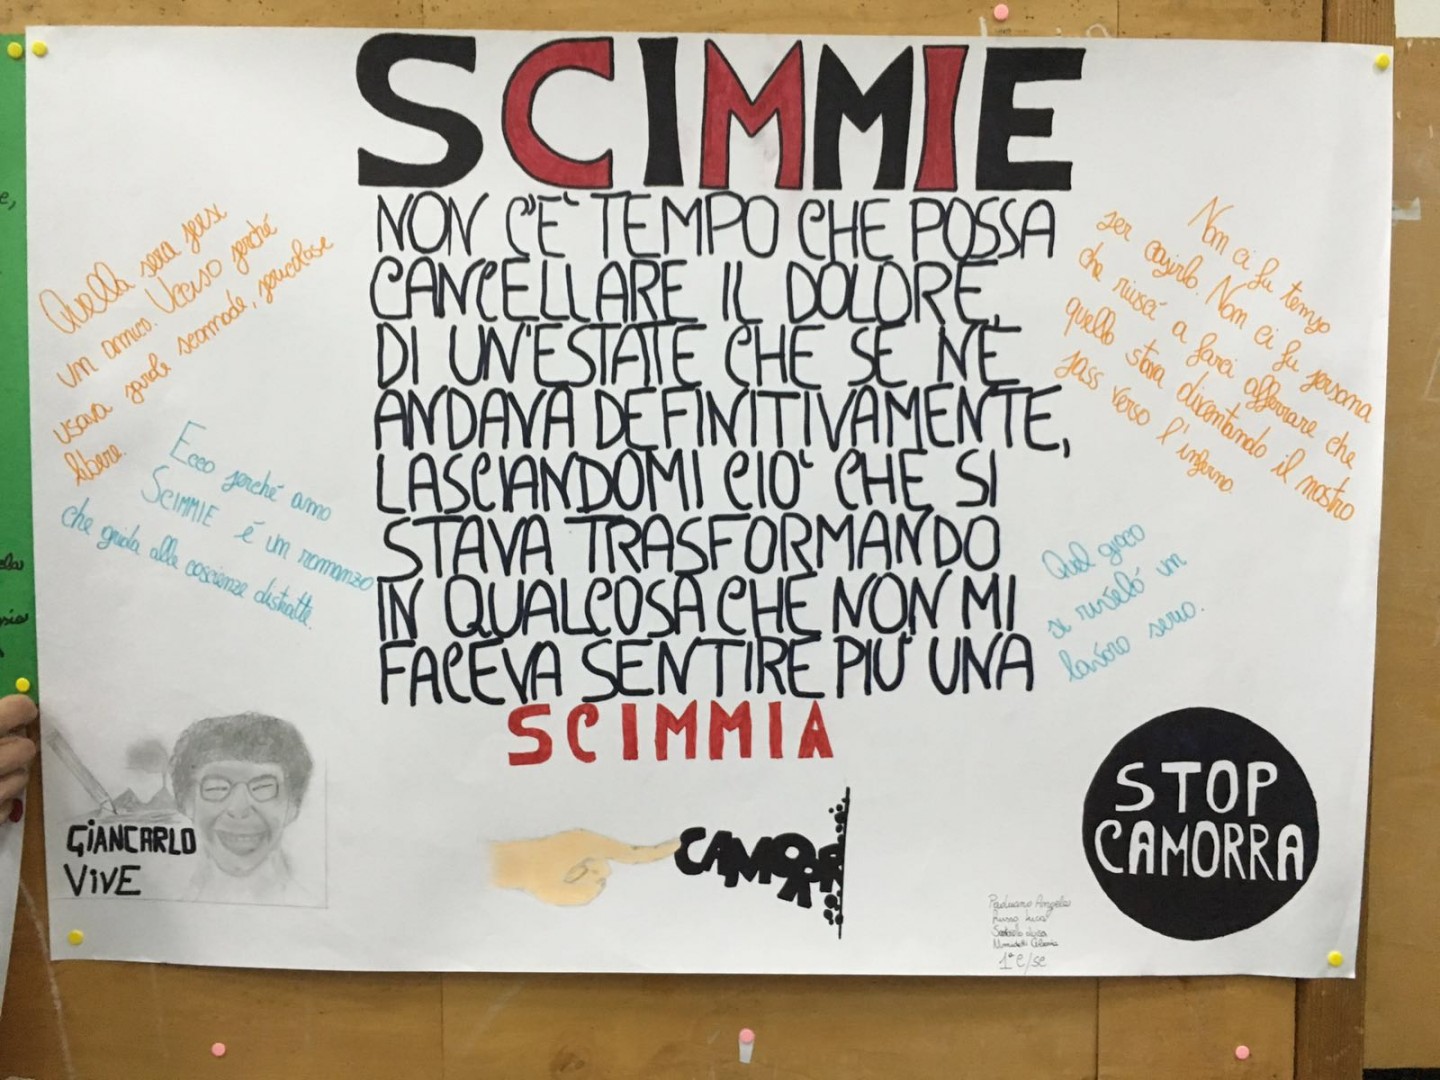 SCIMMIE
NON C'E' TEMPO CHE POSSA
CANCELLARE IL DOLORE,
DI UN'ESTATE CHE SE NE
ANDAVA DEFINITIVAMENTE,
LASCIANDOMI CIO' CHE SI
STAVA TRASFORMANDO
IN QUALCOSA CHE NON MI
FACEVA SENTIRE PIU' UNA
SCIMMIA
Quella sera persi
un amico. Ucciso perché
usava parole scomode, pericolose
libere.
Ecco perché amo
SCIMMIE é un romanzo
che guida alle coscienze distratte.
Non ci fu tempo
per capirlo. Non ci fu persona
che riuscì a farci afferrare che
quello stava diventando il nostro
pass verso l'inferno.
Quel gioco
si rivelò un
lavoro serio.
GiANCARLO
ViVE
CAMORR
STOP
CAMORRA
Angela
Russo Luca
1ª C/sc